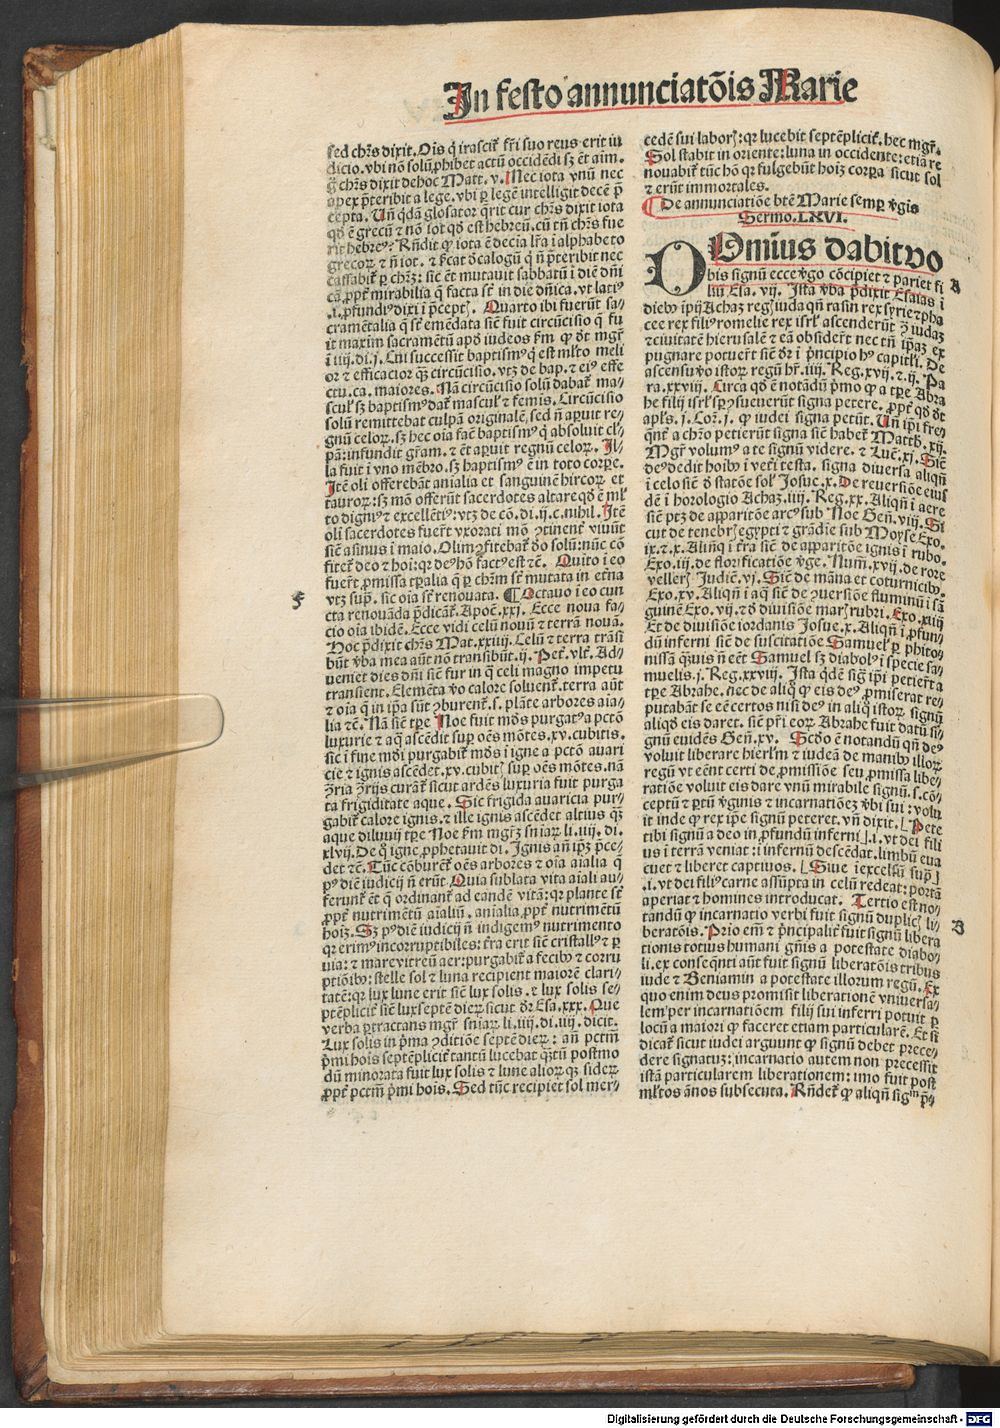 In festo annunciatõis Marie
sed chr̃s dixit. Ois q̇ irascit̃ fr̃i suo reus erit iu
dicio. vbi nõ solũ ꝓhibet actũ occidẽdi sꝫ et̃ aim.
chr̃s dixit de hoc Matt. v. Nec iota vnũ nec
apex p̃teribit a lege. vbi ꝑ legẽ intelligit decẽ p̃
cepta. Uñ q̇dã glosator q̃rit cur chr̃s dixit iota
qd̛ ẽ grecũ ⁊ nõ iot qd̛ est hebreũ. cũ tñ chr̃s fue
rit hebreꝰ. Rñdit ꝙ iota ẽ decia lr̃a i alphabeto
grecoꝝ ⁊ ñ iot.
cã ꝓpt̃ mirabilia q̃ facta st̃ in die dñica. vt latiꝰ
.i. ꝓfundiꝰ dixi i p̃cept̃. Quarto ibi fuerũt sa/
cramẽtalia q̃ st̃ emẽdata siẽ fuit circũcisio q̃ fu
it maximũ sacramẽtũ apd̛ iudeos
i iiij. di. j. Cui successit baptismꝰ q̇ est ml̃to meli
or ⁊ efficacior qꝫ circũcisio. vtꝫ de bap. ⁊ eiꝰ effe
ctu. ca. maiores. Nã circũcisio solũ dabat̃ ma/
sculꝭ sꝫ baptismꝰ dat̃ masculꝭ ⁊ femis. Circũcisio
solũ remittebat culpã originalẽ, sed ñ apuit re/
gnũ celoꝝ. sꝫ hec oia facit baptismꝰ q̇ absoluit cl̃/
pã: infundit gr̃am. ⁊ et̃ aꝑuit regnũ celoꝝ. Il/
la fuit i vno mẽbro. sꝫ baptismꝰ ẽ in toto corꝑe.
Itẽ oli offerebãt anialia et sanguinẽ hircoꝝ et
tauroꝝ: sꝫ mõ offerũt sacerdotes altare qd̛ ẽ ml̃
to digniꝰ ⁊ excellẽtiꝰ: vtꝫ de cõ. di. ij. c. nihil. Itẽ
oli sacerdotes fuer̃t vxorati mõ ꝯtinent̃ viuũt
siẽ asinus i maio. Olim ꝯfitebat̃ d̛o solũ: nũc cõ
fitet̃ deo ⁊ hoi: qꝛ deꝰ hõ factꝰ est ⁊c̃. Quito i eo
fuer̃t ꝓmissa tꝑalia q̃ ꝑ chr̃m st̃ mutata in et̃na
vtꝫ supͣ. sic oia st̃ renouata. ¶ Octauo i eo cun
cta renouãda p̃dicat̃. Apoc̃. xxj. Ecce noua fa/
cio oĩa ibidẽ. Ecce vidi celũ nouũ ⁊ terrã nouã.
Hoc p̃dixit chr̃s Mat. xxiiij. Celũ ⁊ terra trãsi
bũt v̛ba mea aũt nõ transibũt. ij. Pet̃. vlt̃. Ad/
ueniet dies dñi siẽ fur in q̇ celi magno impetu
transient. Elemẽta v̛o calore soluent̃. terra aũt
⁊ oĩa q̃ in ip̃a sũt ꝯburent̃. s. plãte arbores aia/
lia ⁊c̃. Nã siẽ tꝑe Noe fuit mũdꝰ purgatꝰ a pctõ
luxurie ⁊ aq̃ ascẽdit sup̱ oẽs mõtes. xv. cubitis.
sic i fine mũdi purgabit̃ mũdꝰ i igne a pctõ auari
cie ⁊ ignis ascẽdet. xv. cubitꝭ sup̱ oẽs mõtes. nã
ꝯtraria ꝯtrarijs curãt̃ sicut ardẽs luxuria fuit purga
ta frigiditate aque. Sic frigida auaricia pur/
gabit̃ calore ignis. ⁊ ille ignis ascẽdet altius qꝫ
aque diluuij tꝑe Noe fm mgr̃ꝫ sniaꝝ li. iiij. di.
xlvij. De q̇ igne ꝓphetauit di. Ignis añ ip̃ꝫ p̃ce/
det ⁊c̃. Tũc cõburẽt̃ oẽs arbores ⁊ oĩa aialia q̃
pꝰ diẽ iudicij ñ erũt. Quia sublata vita aiali au/
ferunt̃ et̃ q̃ ordinant̃ ad eandẽ vitã: qꝛ plante st̃
ꝓpt̃ nutrimẽtũ aialiũ. anialia ꝓpt̃ nutrimẽtũ
hoiꝫ. Sꝫ pꝰ diẽ iudicij ñ indigemꝰ nutrimento
qꝛ erimꝰ incorruptibiles: t̃ra erit siẽ cristallꝰ ⁊ ꝑ
uia: ⁊ mare vitreũ aer: purgabit̃ a fecibꝰ ⁊ corru
ptiõibꝰ: stelle sol ⁊ luna recipient maiorẽ clari/
tatẽ: qꝛ lux lune erit siẽ lux solis. ⁊ lux solis se/
ptẽplicit̃ siẽ lux septẽ dieꝝ sicut dr̃ Esa. xxx. Que
verba ꝑtractans mgr̃ sniaꝝ li. iiij. di. iiij. dicit.
Lux solis in p̃ma ꝯditiõe septẽ dieꝝ: añ pctm̃
p̃mi hois septẽplicit̃ tantũ lucebat q̃tũ postmo
dũ minorata fuit lux solis ⁊ lune alioꝝ qꝫ sideꝝ
ꝓpt̃ pctm̃ p̃mi hois. Sed tũc recipiet sol mer/
cedẽ sui laborꝭ: qꝛ lucebit septẽplicit̃. hec mgr̃.
Sol stabit in oriente: luna in occidente: etia re
nouabit̃ tũc hõ qꝛ fulgebũt hoiꝫ corꝑa sicut sol
⁊ erũt immortales.
¶ De annunciatiõe btẽ Marie semꝑ v̛gis
Sermo. LXVI.
DOmĩus dabit vo
bis signũ ecce v̛go cõcipiet ⁊ pariet fi
liũ Esa. vij. Ista v̛ba p̃dixit Esaias i
diebꝰ ip̃ius Achaz regꝭ iuda qñ rasin rex syrie ⁊ pha
cee rex filiꝰ romelie rex isrl̃ ascenderũt ꝯtra iudaꝫ
⁊ ciuitatẽ hierusalẽ ⁊ eã obsider̃t nec tñ ip̃aꝫ ex
pugnare potuer̃t siẽ dr̃ i p̃ncipio hꝰ capitl̃i. De
ascensu v̛o istoꝝ regũ hr̃. iiij. Reg. xvij. ⁊ ij. Pa
ra. xxviij. Circa qd̛ ẽ notãdũ p̃mo ꝙ a tꝑe Abra
he filij isrl̃ sp̱ ꝯsueuerũt signa petere. ꝓpt̃ qd̛ dt̃
apl̃s. j. Cor̃. j. ꝙ iudei signa petũt. Uñ ip̃i fre/
q̃nt̃ a chr̃o petierũt signa siẽ habet̃ Matth. xij.
Mgr̃ volumꝰ a te signũ videre. ⁊ Luc̃. xj. Siẽ
deꝰ dedit hoibꝰ i vet̃i testa. signa diuersa aliqñ
i celo siẽ d̛ statõe sol̃ Josue. x. De reuersiõe eius
dẽ i horologio Achaz. iiij. Reg. xx. Aliqñ i aere
siẽ ptꝫ de apparitõe arcꝰ sub Noe Gen̄. viij. Si
cut de tenebrꝭ egypti ⁊ grãdie sub Moyse Exo.
ix. ⁊ x. Aliñq i t̃ra siẽ de apparitõe ignis i rubo.
Exo. iij. de florificatiõe v̛ge. Num̃. xvij. de rore
vellerꝭ Judic̃. vj. Siẽ de mãna et coturnicibꝰ.
Exo. xv. Aliqñ i aq̃ siẽ de ꝯuersiõe fluminũ i sã
guinẽ Exo. vij. ⁊ d̛ diuisiõe marꝭ rubri. Exo. xiiij
Et de diuisiõe iordanis Josue. x. Aliqñ i ꝓfun/
dũ inferni siẽ de suscitatiõe Samuel̃ ꝑ phito/
nissã q̃uis ñ eẽt Samuel sꝫ diabolꝰ i specie sa/
muelis. j. Reg. xxviij. Ista q̇dẽ sigͣ ip̃i petier̃t a
tꝑe Abrahe. nec de aliq̇ ꝙ eis deꝰ ꝓmiserat re/
putabãt se eẽ certos nisi deꝰ in aliq̇ istoꝝ signũ
aliqd̛ eis daret. siẽ pr̃i eoꝝ Abrahe fuit datũ si/
gnũ euidẽs Gen̄. xv. Scd̛o ẽ notandũ qñ deꝰ
voluit liberare hierl̃m ⁊ iudeã de manibꝰ illoꝝ
regũ vt eẽnt certi de ꝓmissiõe seu ꝓmissa libe/
ratiõe voluit eis dare vnũ mirabile signũ. s. cõ/
ceptũ ⁊ ꝑtũ v̛ginis ⁊ incarnatiõeꝫ v̛bi sui: volu
it inde ꝙ rex ip̃e signũ peteret. vñ dixit. [Pete
tibi signũ a deo in ꝓfundũ inferni]. i. vt dei fili
us i terrã veniat: i infernũ descẽdat. limbũ eua
cuet ⁊ liberet captiuos. [Siue i excelsũ supͣ]
.i. vt dei filiꝰ carne assũpta in celũ redeat: portã
aperiat ⁊ homines introducat. Tertio est no/
tandũ ꝙ incarnatio verbi fuit signũ duplicꝭ li/
beratõis. Prio em̃ ⁊ p̃ncipalit̃ fuit signũ libera
tionis totius humani gñis a potestate diabo/
li. ex conseq̃nti aũt fuit signũ liberatõis tribus
iude ⁊ Beniamin a potestate illorum regũ. Ex
quo enim deus promisit liberationẽ vniuersa/
lem ꝑ incarnatiõem filij sui inferri potuit ꝑ
locũ a maiori ꝙ faceret etiam particularẽ. Et si
dicat̃ sicut iudei arguunt ꝙ signũ debet prece/
dere signatuꝫ: incarnatio autem non precessit
istã particularem liberationem: imo fuit post
ml̃tos ãnos subsecuta. Rñdet̃ ꝙ aliqñ sigᵐ p̃/
A
B
Digitalisierung gefördert durch die Deutsche Forschungsgemeinschaft - DFG